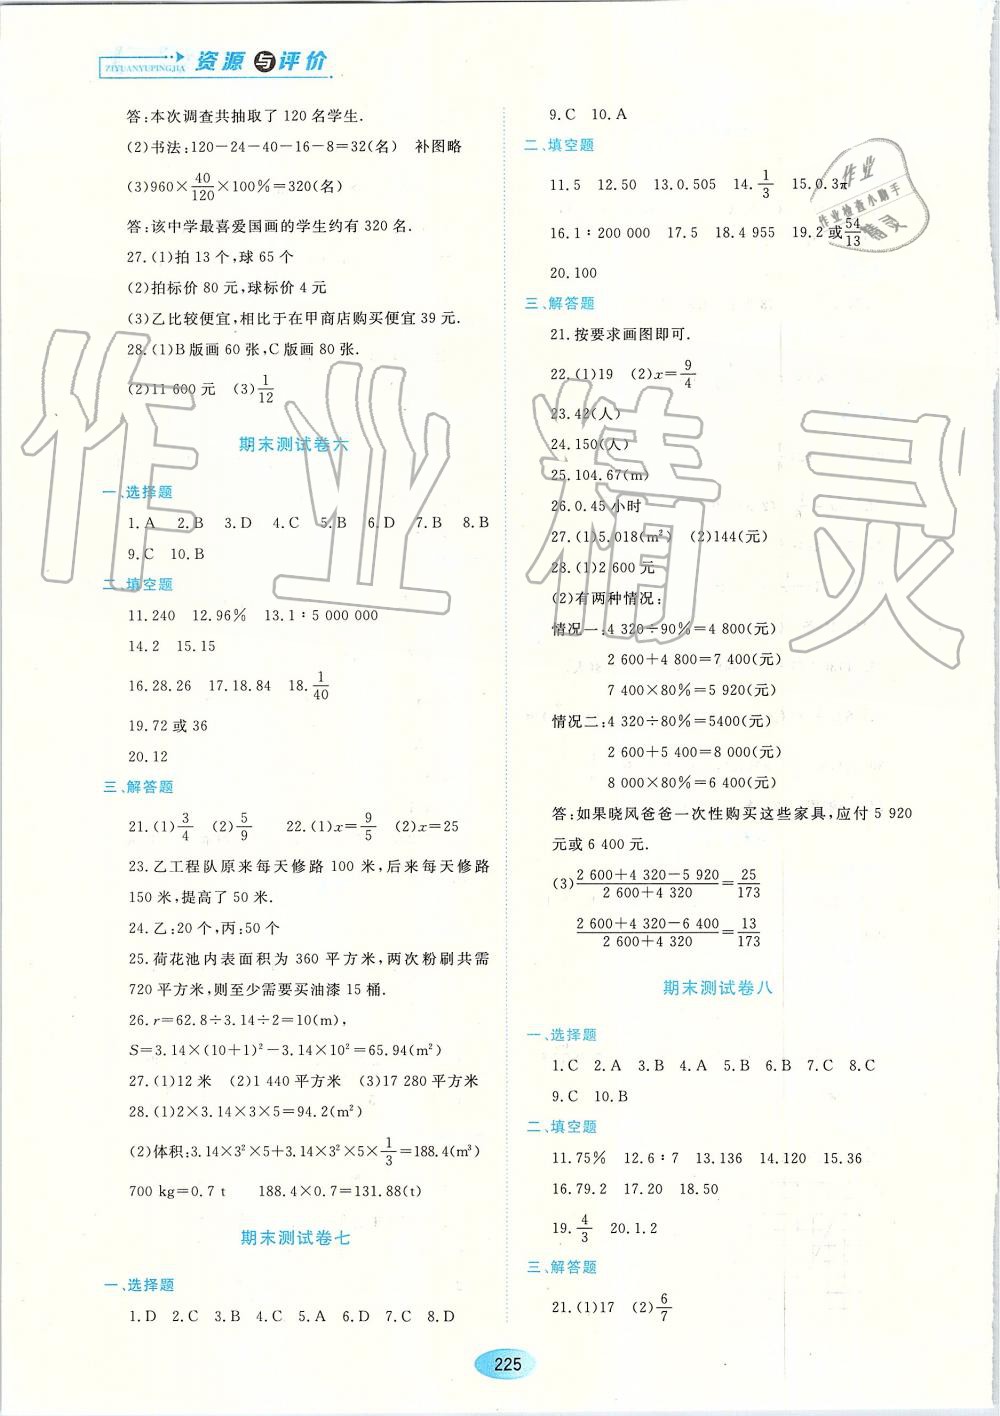 ZIYUANYUPINGJIA 资源与评价
答:本次调查共抽取了 120 名学生.
(2)书法:120-24-40-16-8=32(名) 补图略
(3)960×40/120×100%=320(名)
答:该中学最喜爱国画的学生约有 320 名.
27.(1)拍 13 个,球 65 个
(2)拍标价 80 元,球标价 4 元
(3)乙比较便宜,相比于在甲商店购买便宜 39 元.
28.(1)B 版画 60 张,C 版画 80 张.
(2)11 600 元 (3)1/12
期末测试卷六
一、选择题
1.A 2.B 3.D 4.C 5.B 6.D 7.B 8.B
9.C 10.B
二、填空题
11.240 12.96% 13.1∶5 000 000
14.2 15.15
16.28.26 17.18.84 18.1/40
19.72 或 36
20.12
三、解答题
21.(1)3/4 (2)5/9 22.(1)x=9/5 (2)x=25
23.乙工程队原来每天修路 100 米,后来每天修路
150 米,提高了 50 米.
24.乙:20 个,丙:50 个
25.荷花池内表面积为 360 平方米,两次粉刷共需
720 平方米,则至少需要买油漆 15 桶.
26.r=62.8÷3.14÷2=10(m),
S=3.14×(10+1)²-3.14×10²=65.94(m²)
27.(1)12 米 (2)1 440 平方米 (3)17 280 平方米
28.(1)2×3.14×3×5=94.2(m²)
(2)体积:3.14×3²×5+3.14×3²×5×1/3=188.4(m³)
700 kg=0.7 t 188.4×0.7=131.88(t)
期末测试卷七
一、选择题
1.D 2.C 3.B 4.C 5.A 6.D 7.C 8.D
9.C 10.A
二、填空题
11.5 12.50 13.0.505 14.1/3 15.0.3π
16.1∶200 000 17.5 18.4 955 19.2 或54/13
20.100
三、解答题
21.按要求画图即可.
22.(1)19 (2)x=9/4
23.42(人)
24.150(人)
25.104.67(m)
26.0.45 小时
27.(1)5.018(m²) (2)144(元)
28.(1)2 600 元
(2)有两种情况:
情况一:4 320÷90%=4 800(元)
2 600+4 800=7 400(元)
7 400×80%=5 920(元)
情况二:4 320÷80%=5400(元)
2 600+5 400=8 000(元)
8 000×80%=6 400(元)
答:如果晓风爸爸一次性购买这些家具,应付 5 920
元或 6 400 元.
(3)2 600+4 320-5 920/2 600+4 320=25/173
2 600+4 320-6 400/2 600+4 320=13/173
期末测试卷八
一、选择题
1.C 2.A 3.B 4.A 5.B 6.B 7.C 8.C
9.C 10.B
二、填空题
11.75% 12.6∶7 13.136 14.120 15.36
16.79.2 17.20 18.50
19.4/3 20.1.2
三、解答题
21.(1)17 (2)6/7
225
作业精灵
作业
作业检查小助手
精灵